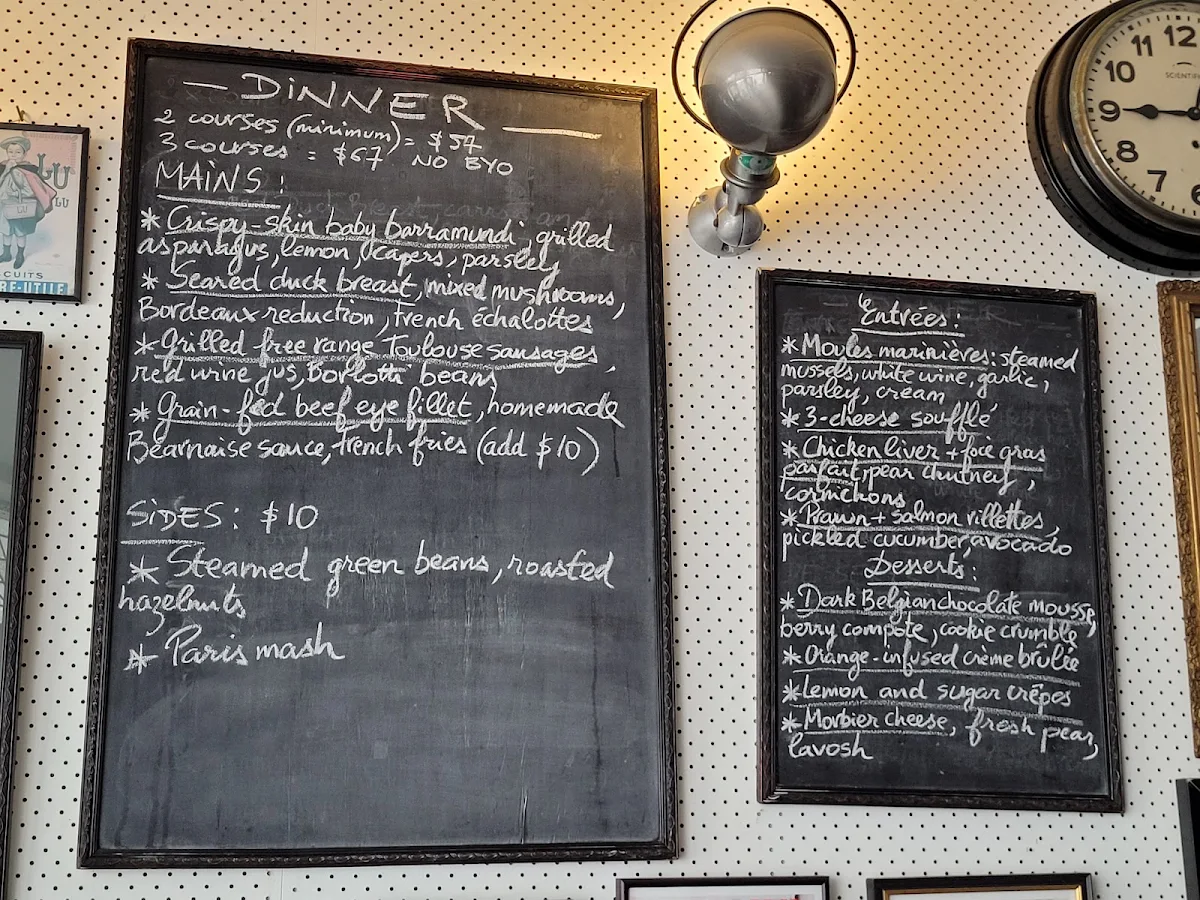 — DINNER —
2 courses (minimum) = $57
3 courses = $67 NO BYO
MAINS :
* Crispy-skin baby barramundi, grilled
asparagus, lemon, capers, parsley
* Seared duck breast, mixed mushrooms,
Bordeaux reduction, french échalottes
* Grilled free range Toulouse sausages,
red wine jus, Borlotti beans
* Grain-fed beef eye fillet, homemade
Béarnaise sauce, french fries (add $10)
SIDES : $10
* Steamed green beans, roasted
hazelnuts
* Paris mash
Entrées :
* Moules marinières: steamed
mussels, white wine, garlic,
parsley, cream
* 3-cheese soufflé
* Chicken liver + foie gras
parfait, pear chutney,
cornichons
* Prawn + salmon rillettes,
pickled cucumber, avocado
Desserts :
* Dark Belgian chocolate mousse,
berry compote, cookie crumble
* Orange-infused crème brûlée
* Lemon and sugar crêpes
* Morbier cheese, fresh pear,
lavosh
LU
LU
CUITS
RE-UTILE
11 12
10
9
8
7
SCIENTIF